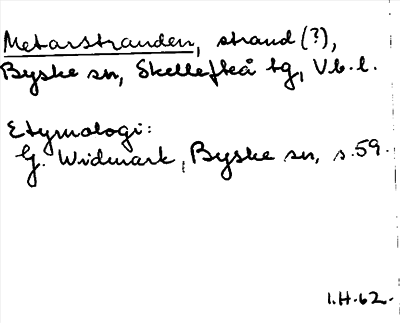 Metarstranden, strand (?),
Byske sn, Skellefteå tg, Vb. l.
Etymologi:
G. Widmark, Byske sn, s. 59.
I.H. 62.